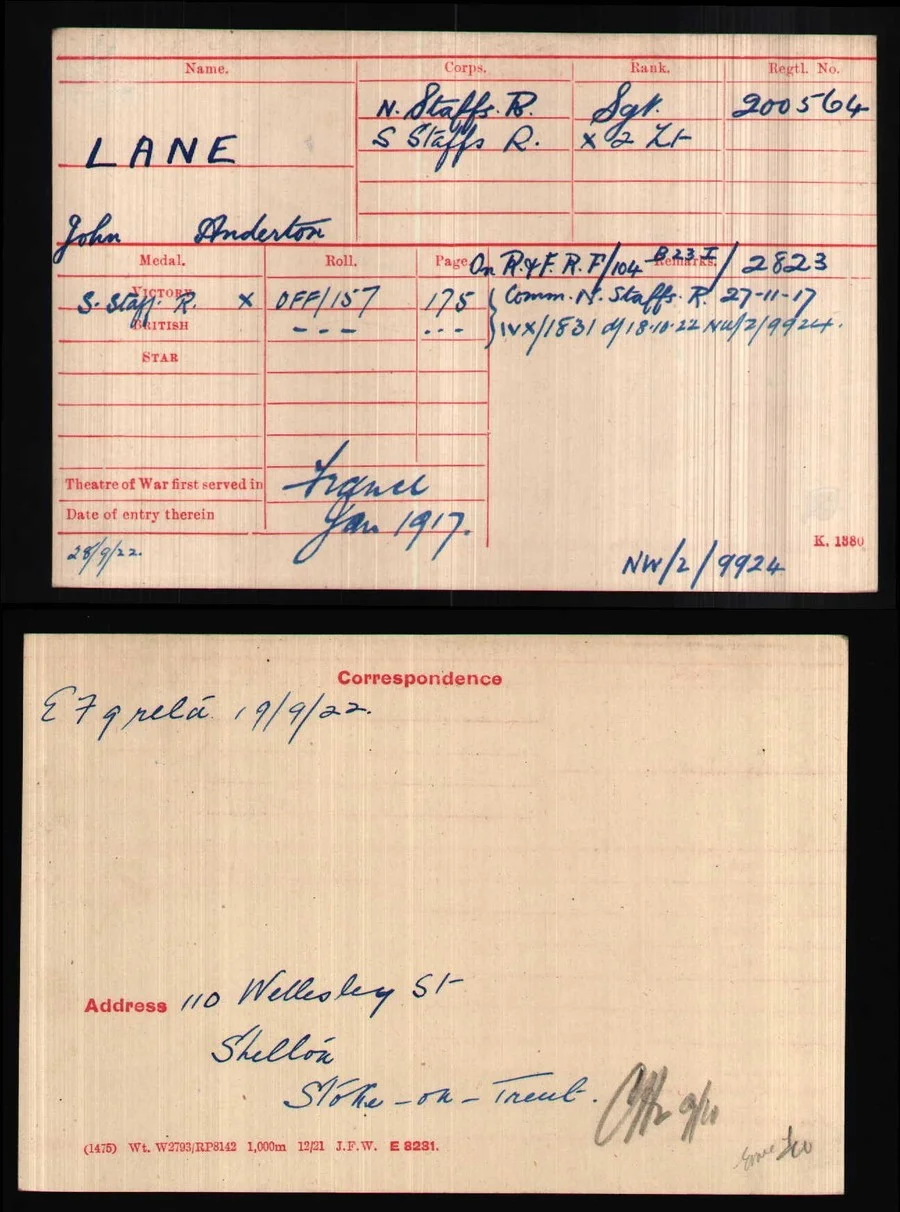 Name. Corps. Rank. Regtl. No.
N. Staffs. R. Sgt. 200564
LANE S Staffs R. x 2 Lt
John Anderton
Medal. Roll. Page. Remarks.
On R. & F. R. F/104 B 23 I / 2823
VICTORY
S. Staff. R. x OFF/157 175 Comm. N. Staffs. R. 27-11-17
BRITISH - - - - - - IVX/1831 d/18.10.22 NW/2/9924.
STAR
Theatre of War first served in France
Date of entry therein Jan 1917.
K. 1380
28/9/22.
NW/2/9924
Correspondence
E F 9 19/9/22.
Address 110 Wellesley St
Shelton
Stoke-on-Trent.
9/11
(1475) Wt. W2793/RP8142 1,000m 12/21 J.F.W. E 8231.